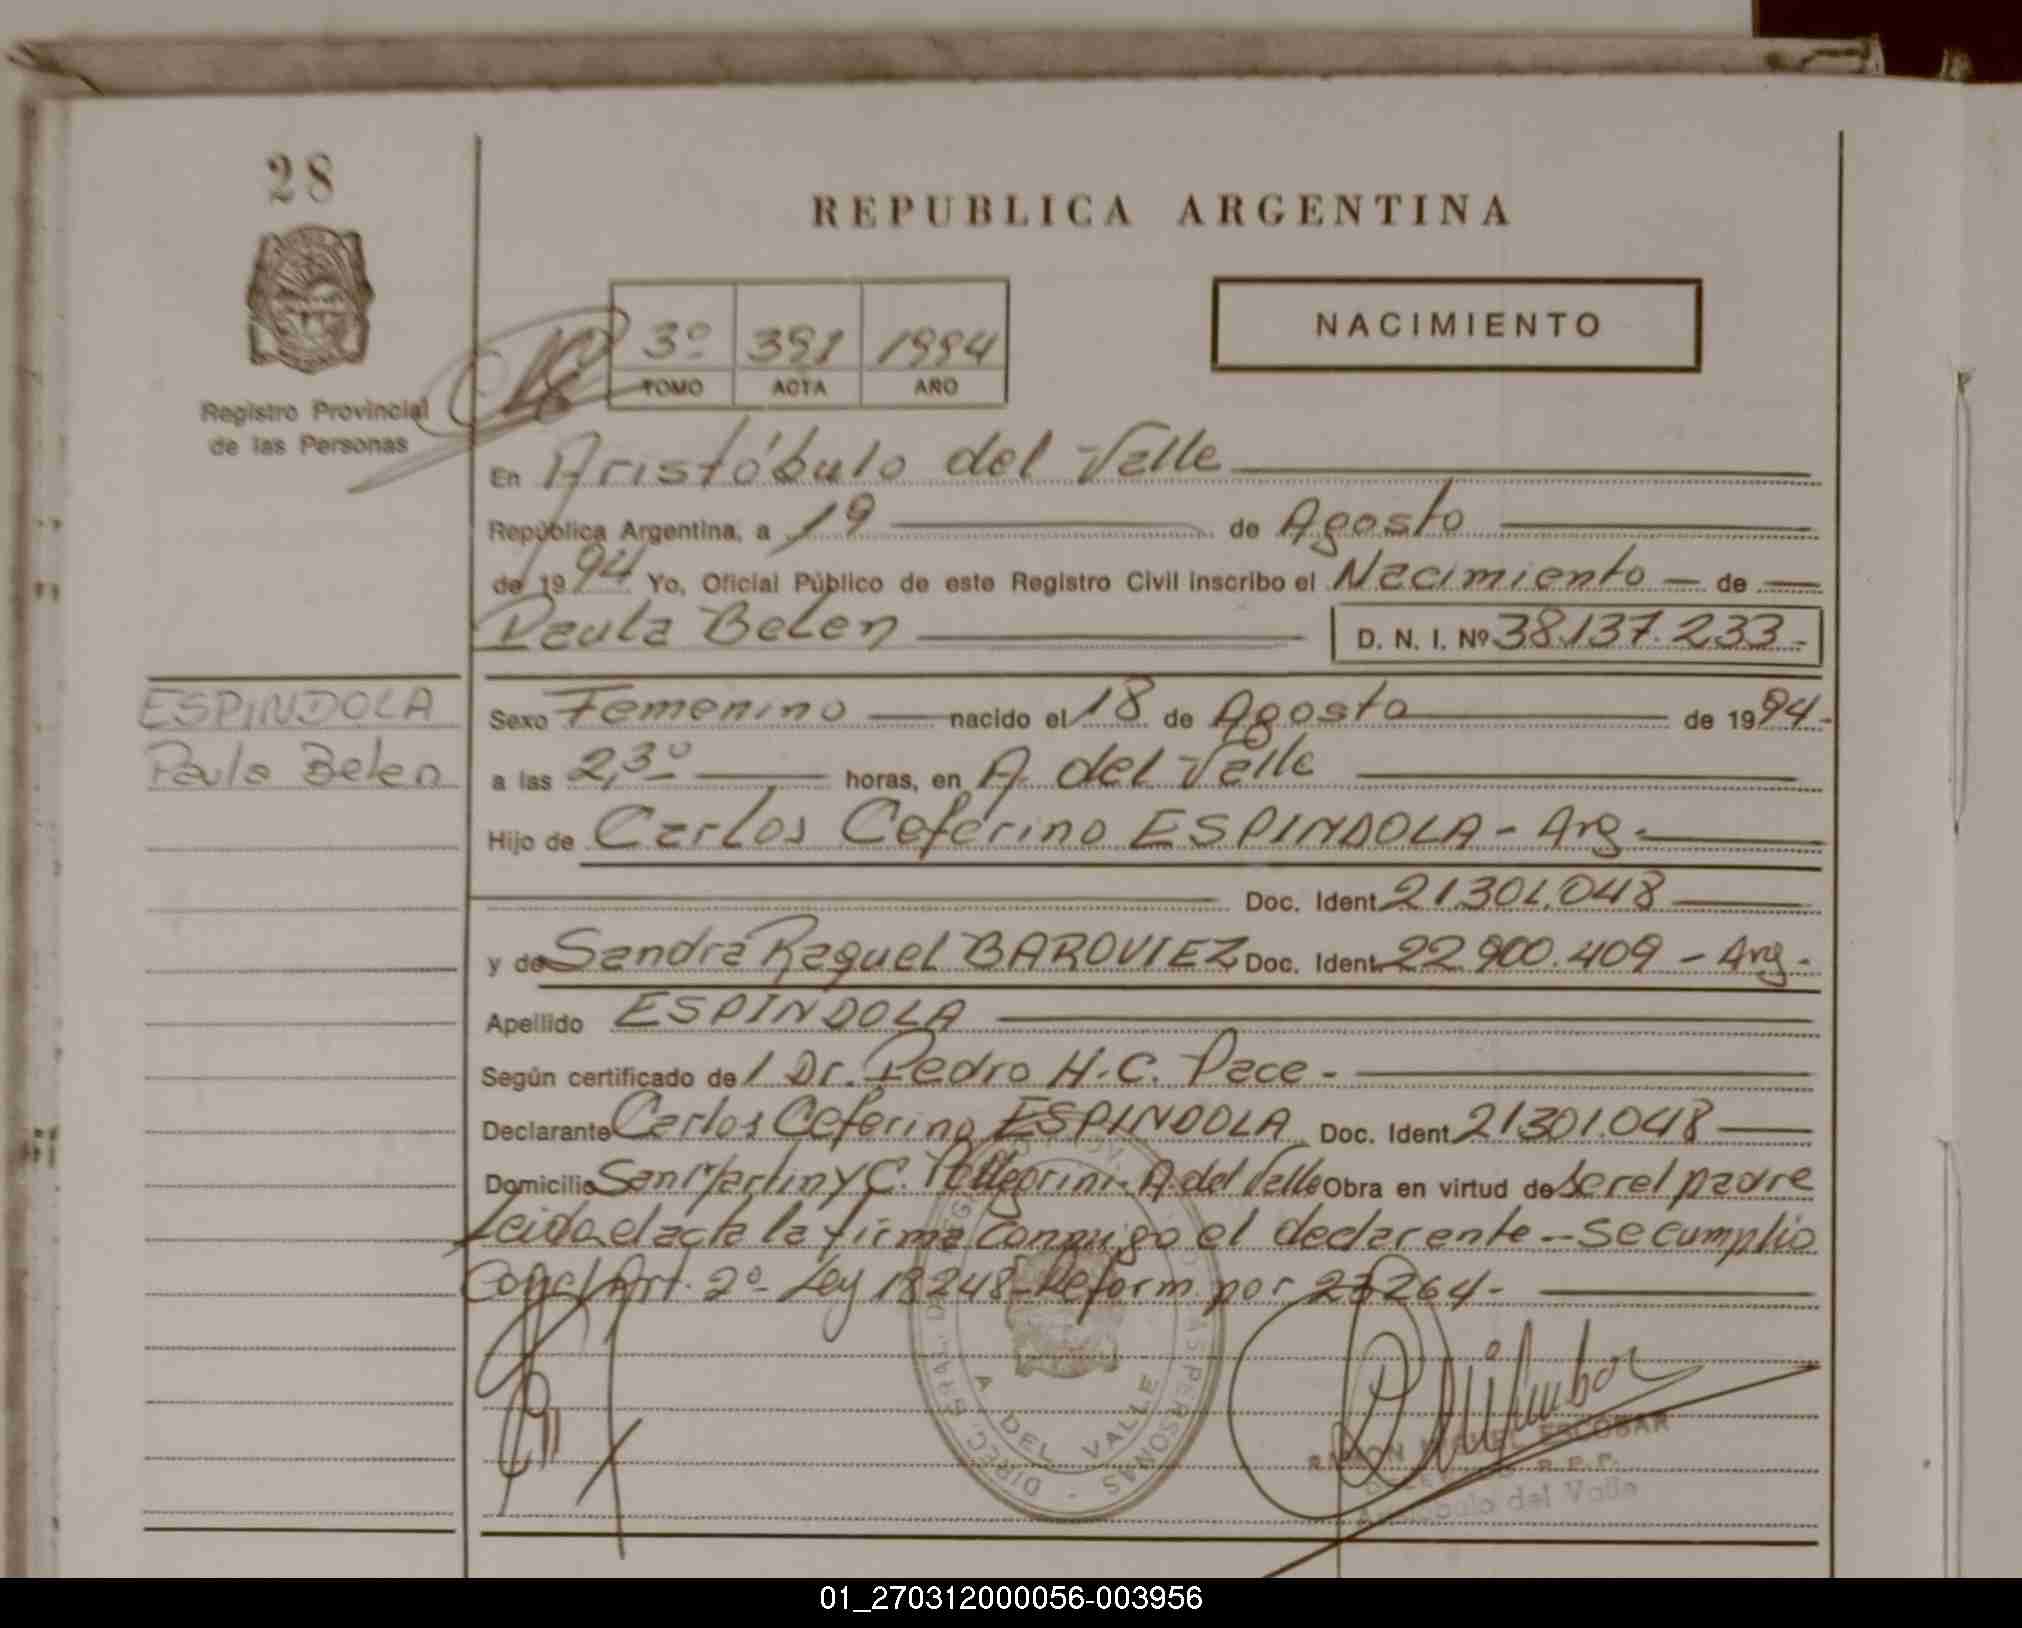 28
REPUBLICA ARGENTINA
NACIMIENTO
3º 391 1994
TOMO ACTA AÑO
Registro Provincial
de las Personas
En Aristóbulo del Valle
República Argentina, a 19 de Agosto
de 1994 Yo, Oficial Público de este Registro Civil inscribo el Nacimiento de
Paula Belen D. N. I. Nº 38.137.233.-
ESPINDOLA
Paula Belen
Sexo Femenino nacido el 18 de Agosto de 1994.-
a las 2,3º horas, en A. del Valle
Hijo de Carlos Ceferino ESPINDOLA - Arg.-
Doc. Ident. 21.301.048
y de Sandra Raquel BAROVIEZ Doc. Ident. 22.900.409 - Arg.-
Apellido ESPINDOLA
Según certificado de l Dr. Pedro H.C. Pace -
Declarante Carlos Ceferino ESPINDOLA Doc. Ident. 21301.048
Domicilio San Martin y C. Pellegrini - A del Valle Obra en virtud de ser el padre
Leida el acta la firma conmigo el declarante -- se cumplio
con el Art. 2º Ley 18248 - Reform. por 23264 -
A DEL VALLE
DIREC. GRAL. DE PERSONAS
RAMON MIGUEL ESCOBAR
R.P.P.
Aristobulo del Valle
01_270312000056-003956